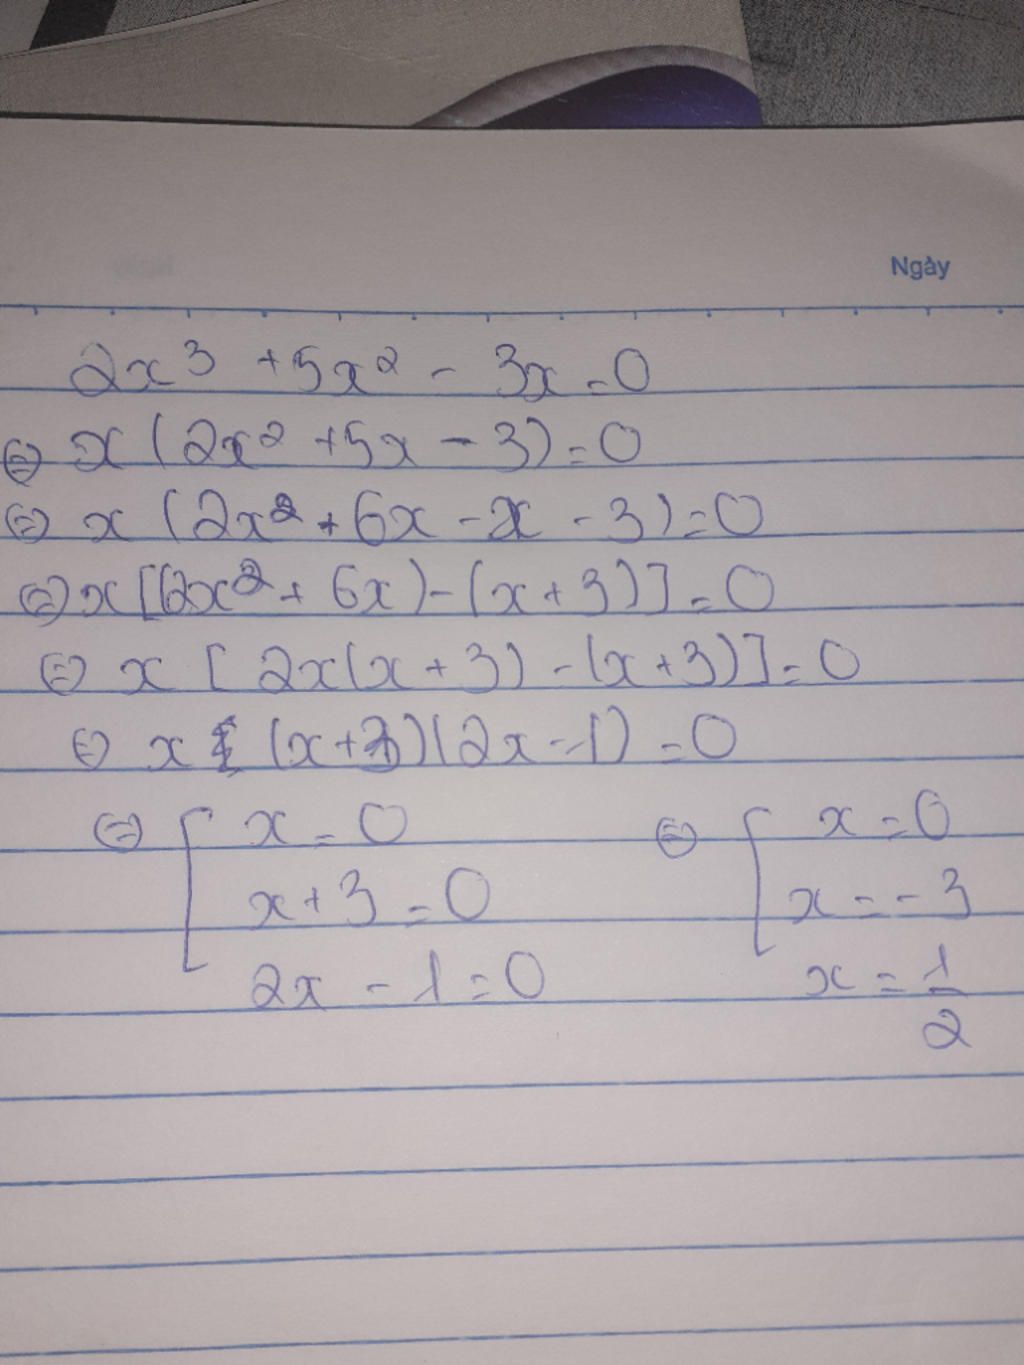 Ngày
2x³ + 5x² - 3x = 0
⇔ x (2x² + 5x - 3) = 0
⇔ x (2x² + 6x - x - 3) = 0
⇔ x [(2x² + 6x) - (x + 3)] = 0
⇔ x [ 2x(x + 3) - (x + 3)] = 0
⇔ x (x + 3)(2x - 1) = 0
⇔ [ x = 0 ⇔ [ x = 0
x + 3 = 0 x = -3
2x - 1 = 0 x = 1/2